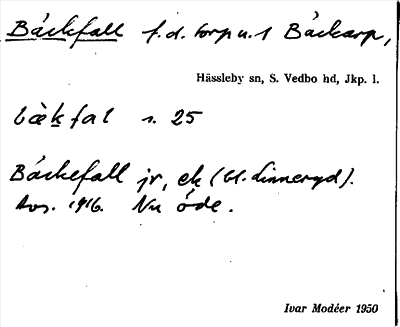 Bäckfall f.d. torp u. 1 Bäckarp,
Hässleby sn, S. Vedbo hd, Jkp. l.
bæ̀kfal s. 25
Bäckefall jr, ek (bl. Linneryd).
Avs. 1916. Nu öde.
Ivar Modéer 1950